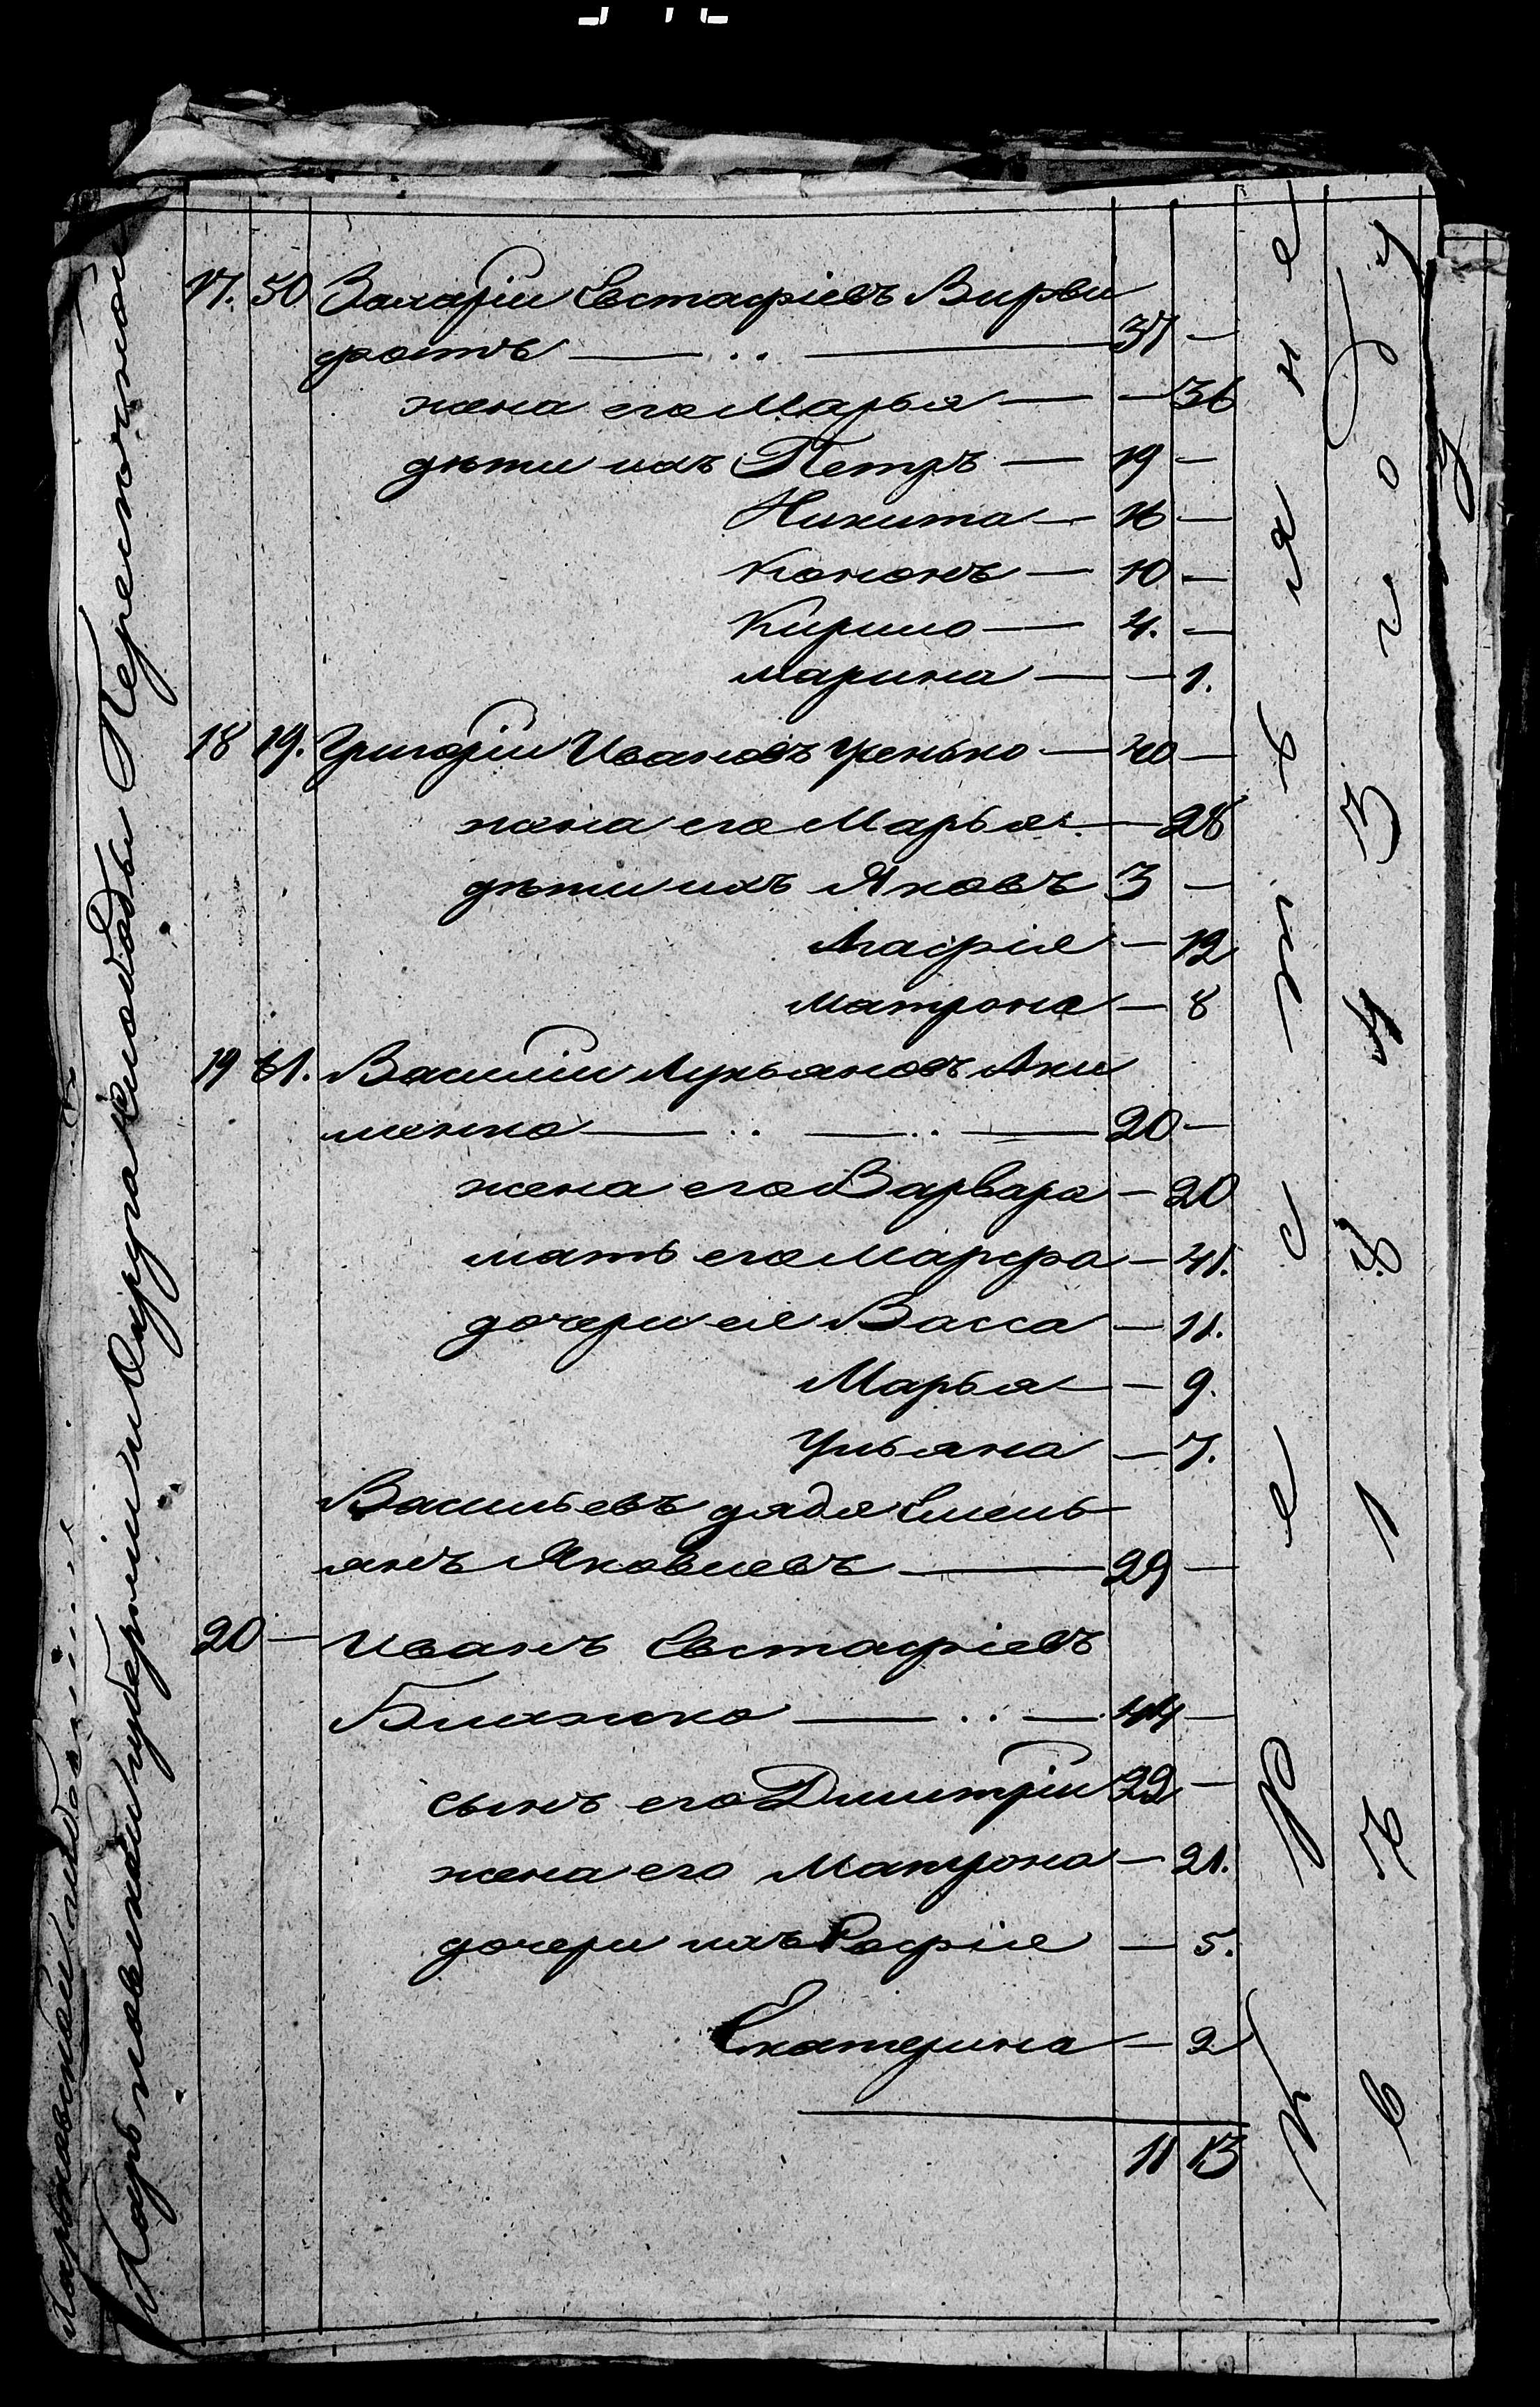 17. 50 Захарій Евстафіевъ Вирви
хвостъ — .. — 37 —
жена его Марья — — 36
дѣти ихъ Петръ — 19 —
Никита — 16 —
Кононъ — 10 —
Кирило — 4. —
Марина — — 1.
18 19. Григорій Ивановъ — 40 —
жена его Марья — 28
дѣти ихъ Яковъ 3 —
Матрона — 8
19 Василій Лукьяновъ Аки
менко — .. — .. — 20 —
жена его Варвара — 20
мать его Марфа — 41.
дочери ея Васса — 11.
Марья — — 9.
Ульяна — 7.
Васильевъ дядя Емель
янъ Яковлевъ — 29 —
20 — Иванъ Евстафіевъ
— .. — 44 —
сынъ его Дмитрій 22 —
жена его Матрона — 21.
дочери ихъ Софія — 5.
Екатерина — 2
11 13
Крестьяне
въ 1843 году